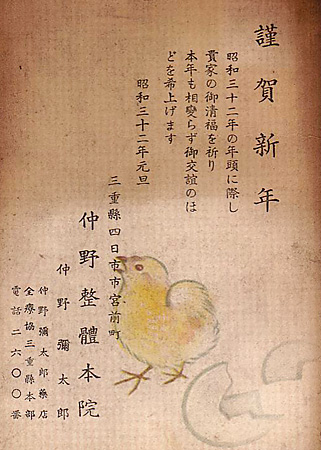 謹賀新年
昭和三十二年の年頭に際し
貴家の御清福を祈り
本年も相變らず御交誼のほ
どを希上げます
昭和三十二年元旦
三重縣四日市市宮前町
仲野整體本院
仲野彌太郎
仲野彌太郎藥店
全療協三重縣本部
電話二六〇〇番